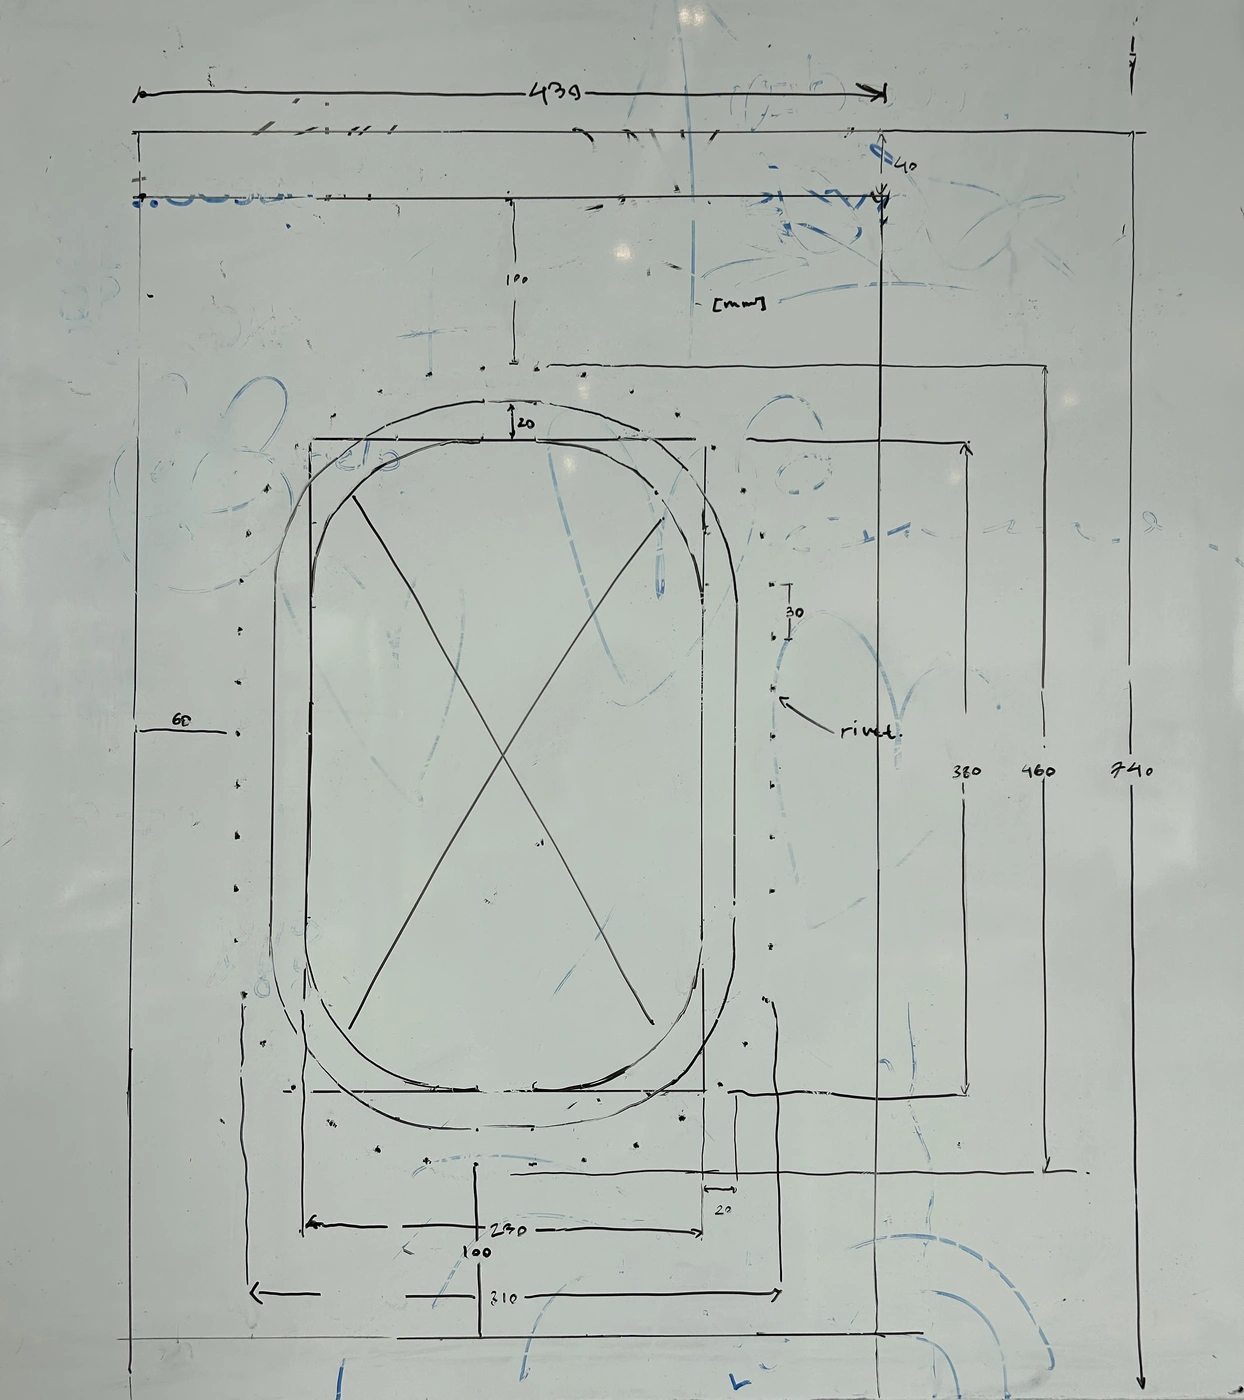 430
40
100
[mm]
20
30
60
rivet.
380
460
740
20
230
100
310